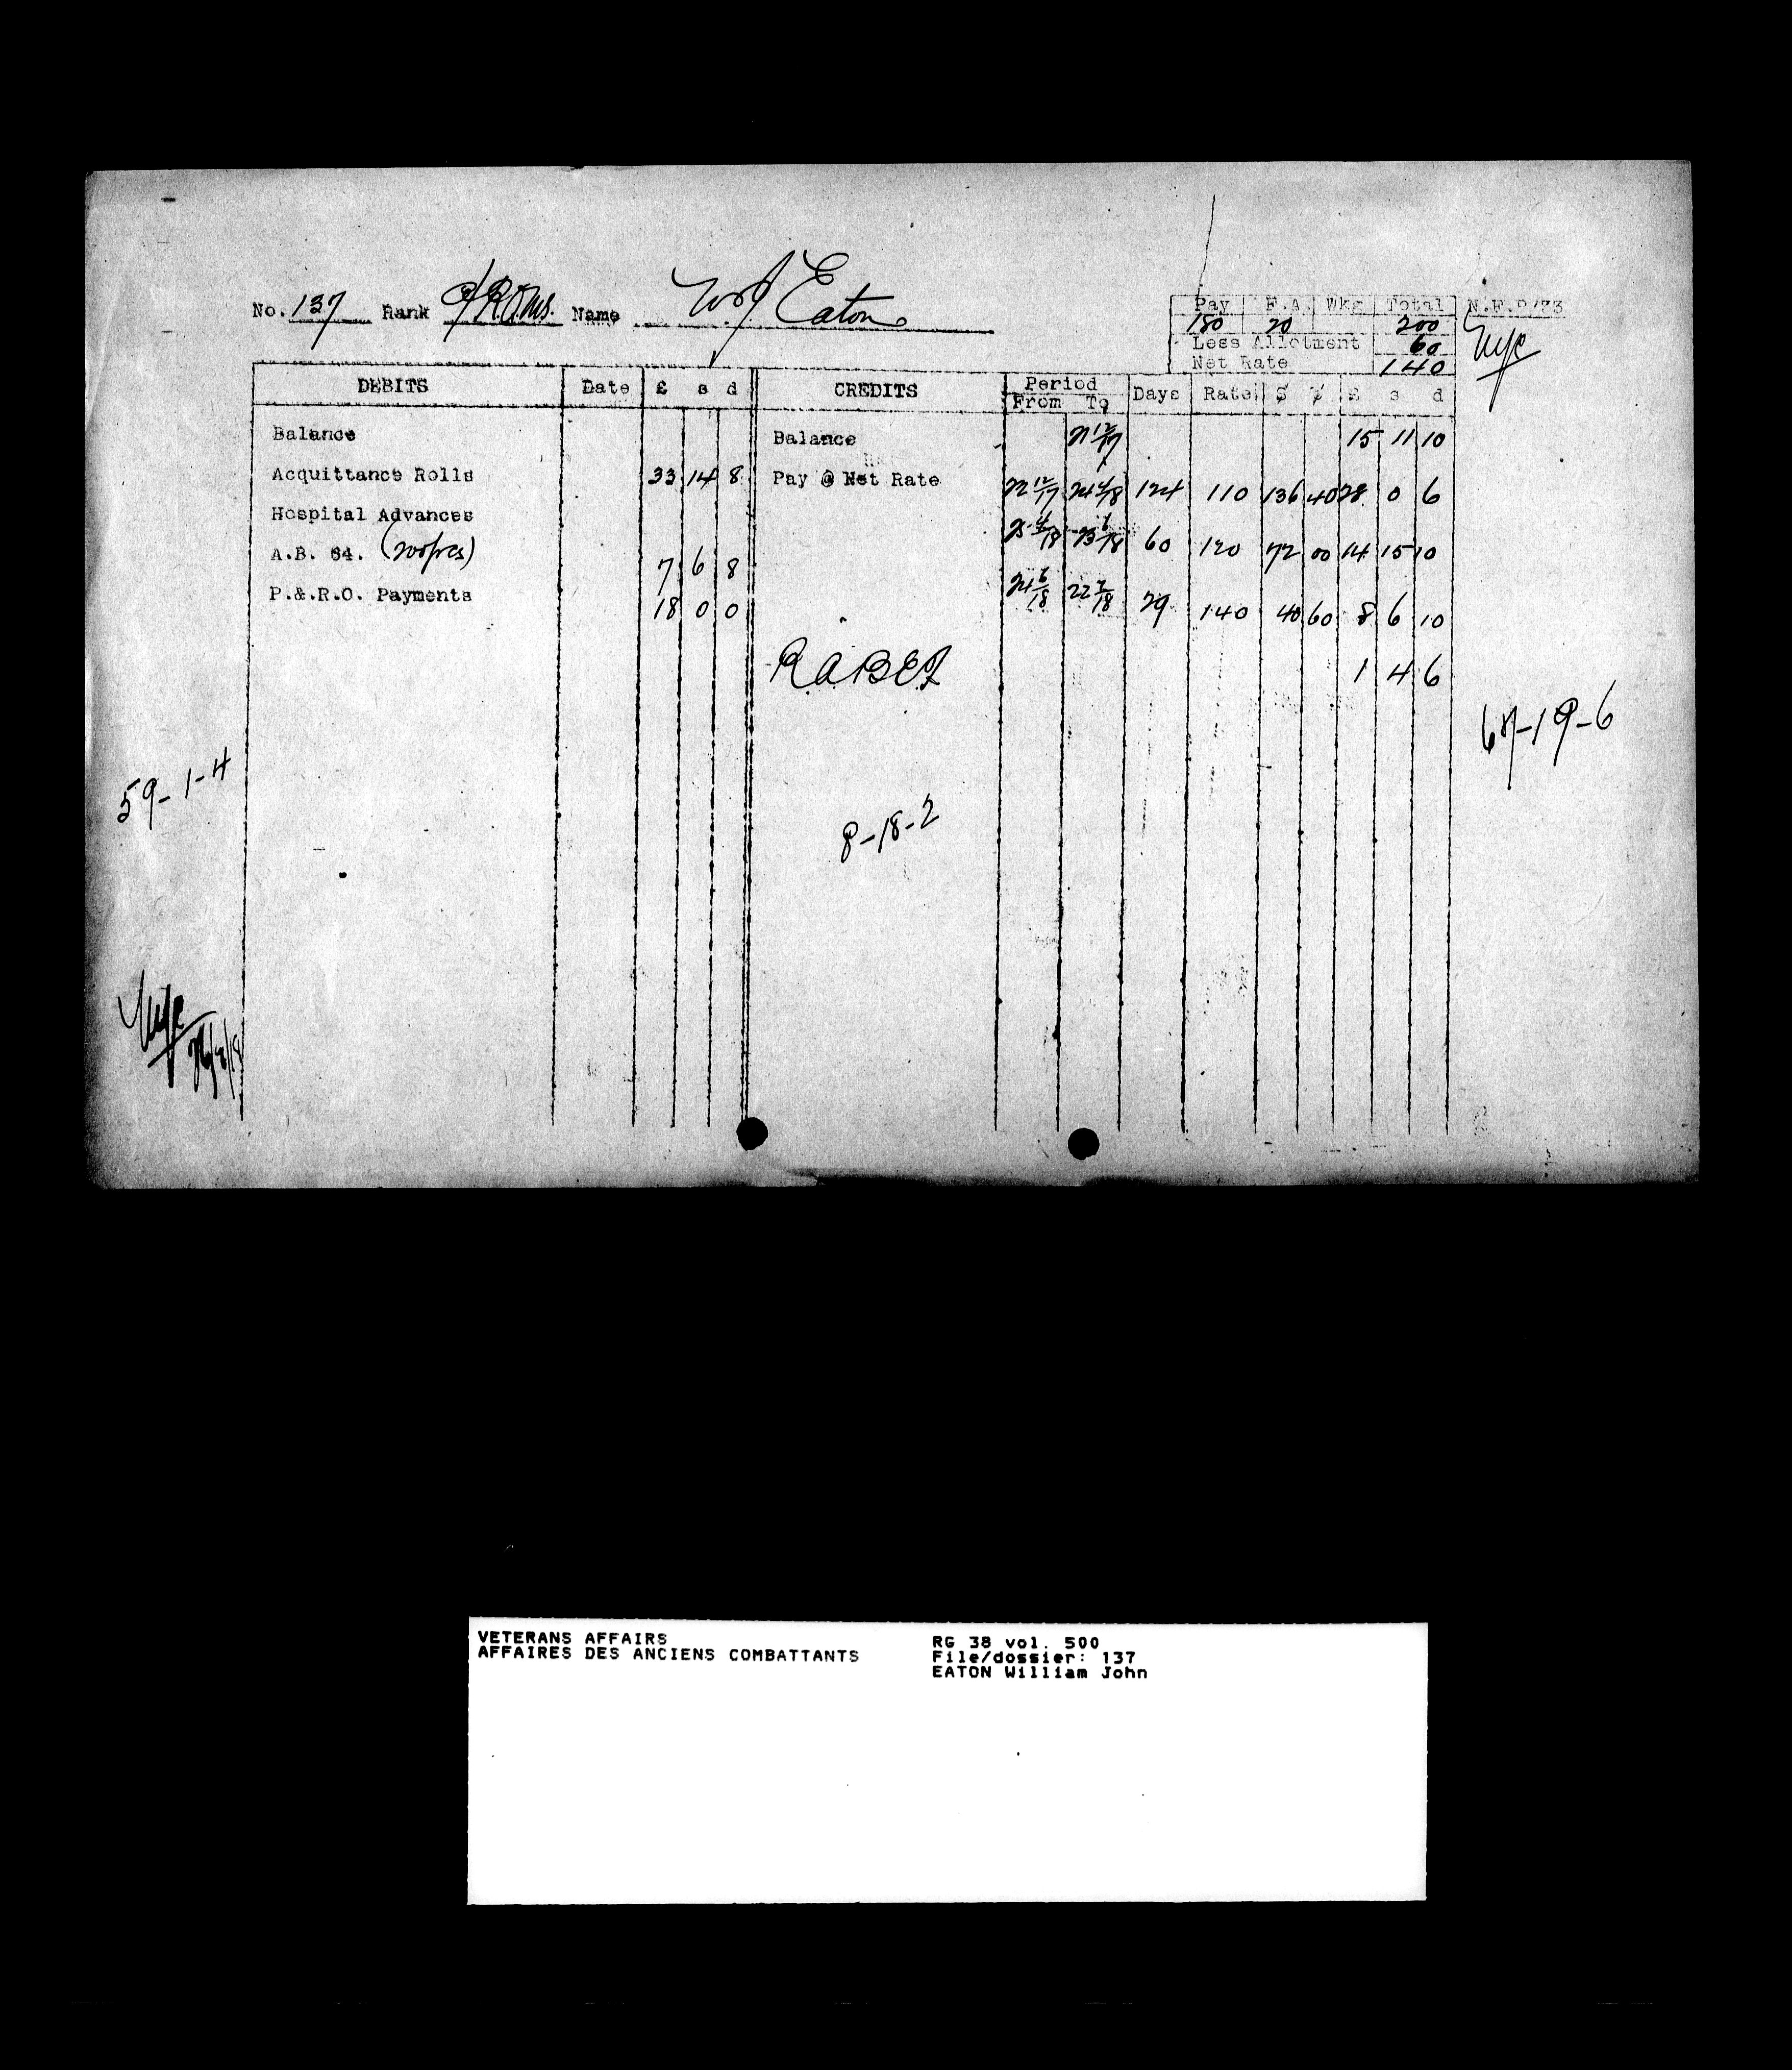 No. 137 Rank Name W J Eaton
Pay F.A. Wkg Total N.F.P/73
180 20 200
Less Allotment 60
Net Rate 140
DEBITS Date £ s d CREDITS Period From To Days Rate $ ¢ £ s d
Balance Balance 21 12/17 15 11 10
Acquittance Rolls 33 14 8 Pay @ Net Rate 22 12/17 24 4/18 124 110 136 40 28 0 6
Hospital Advances
A.B. 64. (200 frcs) 7 6 8 25 4/18 23 6/18 60 120 72 00 14 15 10
P.&.R.O. Payments 18 0 0 24 6/18 22 7/18 29 140 40 60 8 6 10
1 4 6
67-19-6
59-1-4
8-18-2
VETERANS AFFAIRS
AFFAIRES DES ANCIENS COMBATTANTS
RG 38 vol. 500
File/dossier: 137
EATON William John